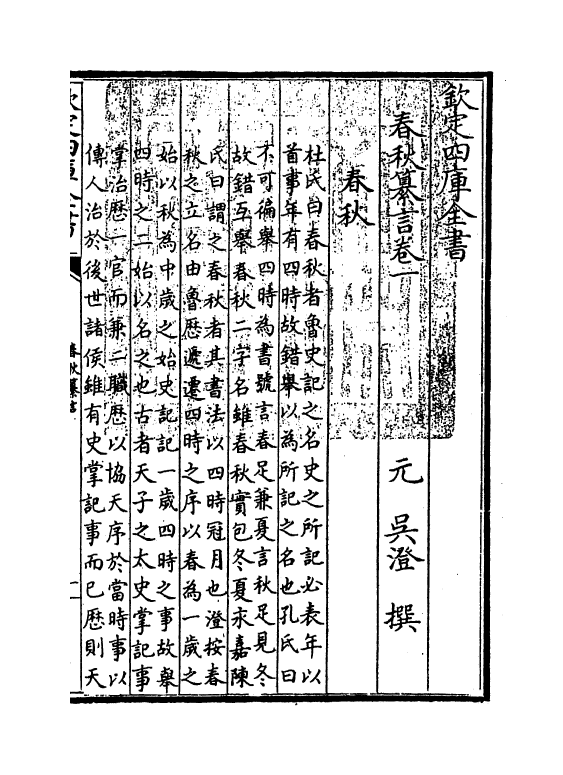 欽定四庫全書
春秋纂言卷一
元 吳澄 撰
春秋
杜氏曰春秋者魯史記之名史之所記必表年以
首事年有四時故錯舉以為所記之名也孔氏曰
不可徧舉四時為書號言春足兼夏言秋足見冬
故錯互舉春秋二字名雖春秋實包冬夏永嘉陳
氏曰謂之春秋者其書法以四時冠月也澄按春
秋之立名由魯歴遞遷四時之序以春為一歲之
始以秋為中歲之始史記記一歲四時之事故舉
四時之二始以名之也古者天子之太史掌記事
掌治歴一官而兼二職歴以協天序於當時事以
傳人治於後世諸侯雖有史掌記事而已歴則天
欽定四庫全書
春秋纂言
一